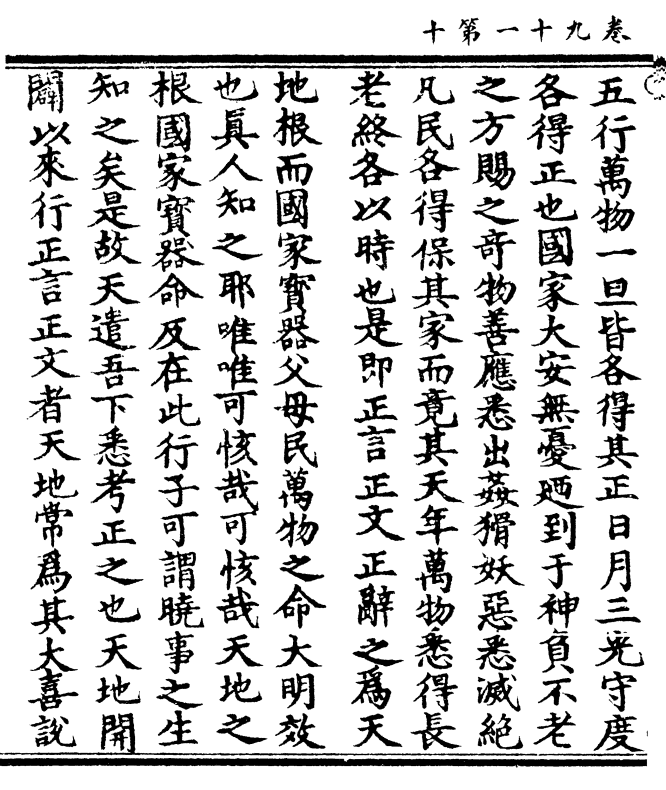 卷九十一第十
五行萬物一旦皆各得其正日月三光守度
各得正也國家大安無憂廼到于神負不老
之方賜之奇物善應悉出姦猾妖惡悉滅絕
凡民各得保其家而竟其天年萬物悉得長
老終各以時也是即正言正文正辭之爲天
地根而國家寳器父母民萬物之命大明效
也眞人知之耶唯唯可恢哉可恢哉天地之
根國家寳器命及在此行子可謂曉事之生
知之矣是故天遣吾下悉考正之也天地開
闢以來行正言正文者天地常爲其大喜說